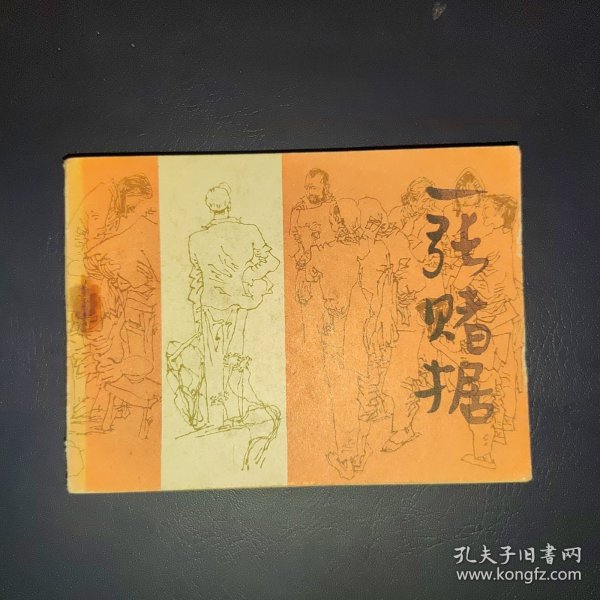 一张赌据
孔夫子旧書网
www.kongfz.com